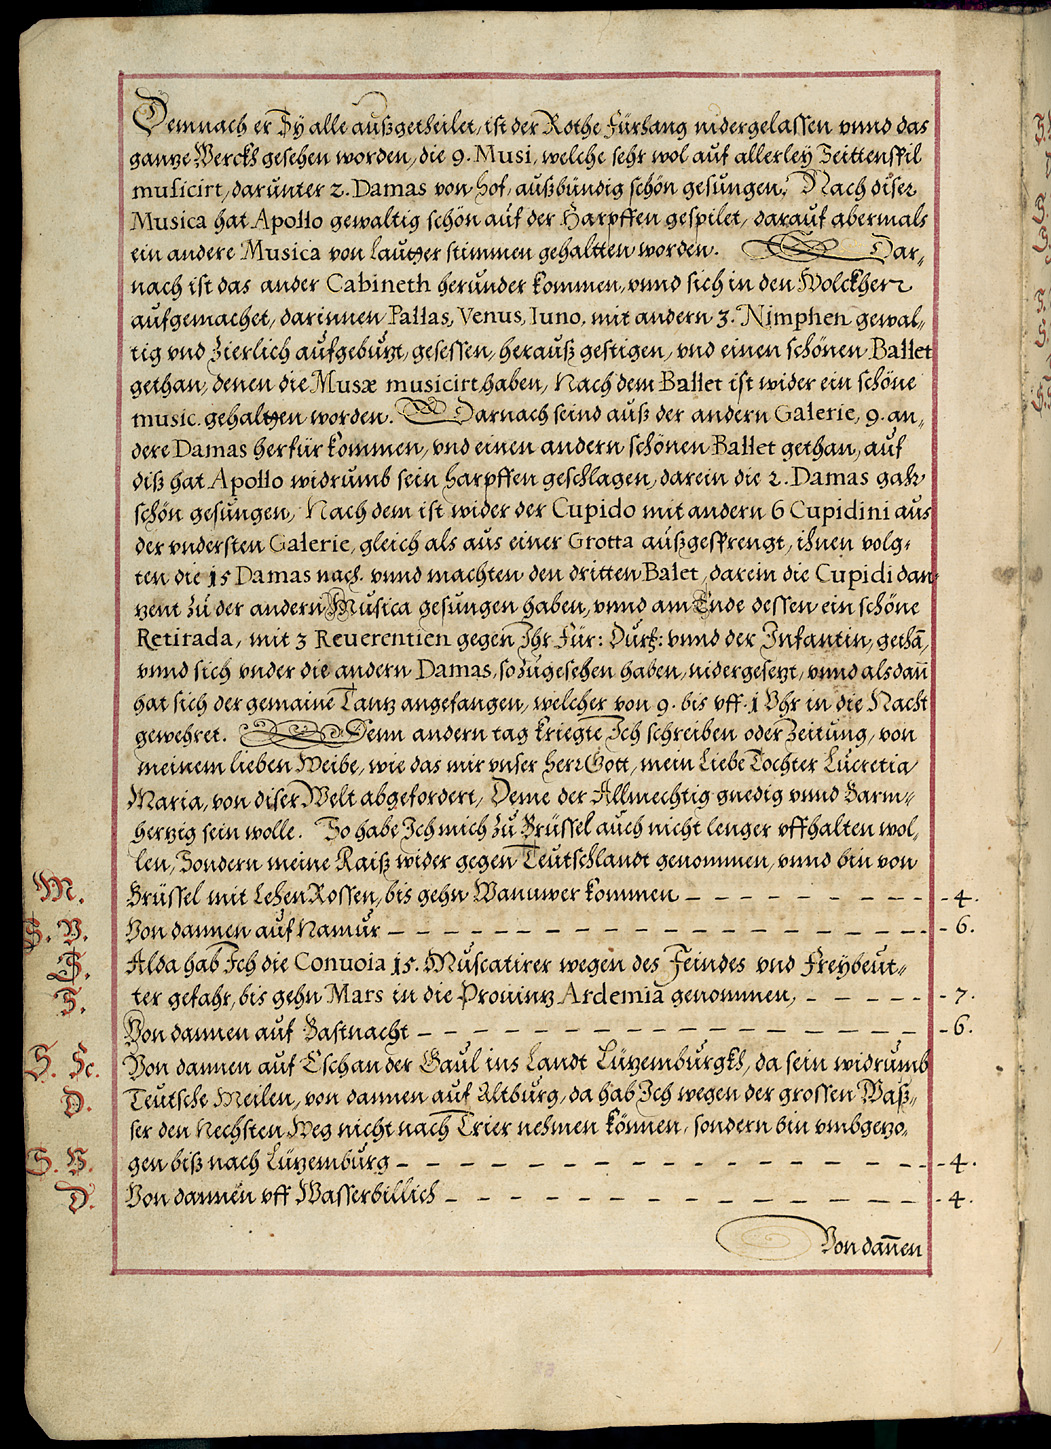 Demnach er Sÿ alle außgetheilet, ist der Rothe Fürhang nidergelassen vnnd das
gantze Werckh gesehen worden, die 9. Musi, welche sehr wol auf allerleÿ Seittenspil
musicirt, darunter 2. Damas von hof, außbündig schön gesungen. Nach diser
Musica hat Apollo gewaltig schön auf der Harpffen gespilet, darauf abermals
ein andere Musica von lautter stimmen gehaltten worden. Dar„
nach ist das ander Cabineth herunder kommen, vnnd sich in den Wolckherr
aufgemachet, darinnen Pallas, Venus, Iuno, mit andern 3. Nimphen gewal„
tig vnd zierlich aufgebutzt, gesessen, herauß gestigen, vnd einen schönen Ballet
gethan, denen die Musæ musicirt haben, Nach dem Ballet ist wider ein schöne
music gehaltten worden. Darnach seind auß der andern Galerie, 9. an„
dere Damas herfür kommen, vnd einen andern schönen Ballet gethan, auf
diß hat Apollo widrumb sein harpffen geschlagen, darein die 2. Damas gahr
schön gesungen, Nach dem ist wider der Cupido mit andern 6 Cupidini aus
der vndersten Galerie, gleich als aus einer Grotta außgesprengt, ihnen volg„
ten die 15 Damas nach. vnnd machten den dritten Balet, darein die Cupidi dan„
tzent zu der andern Musica gesungen haben, vnnd am Ende dessen ein schöne
Retirada, mit 3 Reuerentien gegen Ihr Für: Durh: vnnd der Infantin, gethā,
vnnd sich vnder die andern Damas, so zugesehen haben, nidergesetzt, vnnd alsdañ
hat sich der gemaine Tantz angefangen, welcher von 9. bis vff. 1 Vhr in die Nacht
gewehret. Denn andern tag kriegte Ich schreiben oder Zeitung, von
meinem lieben Weibe, wie das mir vnser herr Gott, mein Liebe Tochter Lucretia
Maria, von diser Welt abgefordert, Deme der Allmechtig gnedig vnnd Barm„
hertzig sein wolle. So habe Ich mich zu Brüssel auch nicht lenger vffhalten wol„
len, Sondern meine Raiß wider gegen Teutschlandt genommen, vnnd bin von
M. Brüssel mit Lehen Rossen, bis gehn Wanuwer kommen - 4.
S. V. Von dannen auf Namur - 6.
S. Alda hab Ich die Conuoia 15. Muscatirer wegen des Feindes vnd Freÿbeut„
S. ter gefahr, bis gehn Mars in die Prouintz Ardemia genommen, - 7.
Von dannen auf Bastnacht - 6.
S. Sc. Von dannen auf Eschan der Gaul ins Landt Lützemburgkh, da sein widrumb
D. Teutsche Meilen, von dannen auf Altburg, da hab Ich wegen der grossen Waß„
ser den Nechsten Weg nicht nach Trier nehmen können, sondern bin vmbgezo„
S. V. gen biß nach Lützemburg - 4.
D. Von dannen vff Wasserbillich - 4.
Von dañen